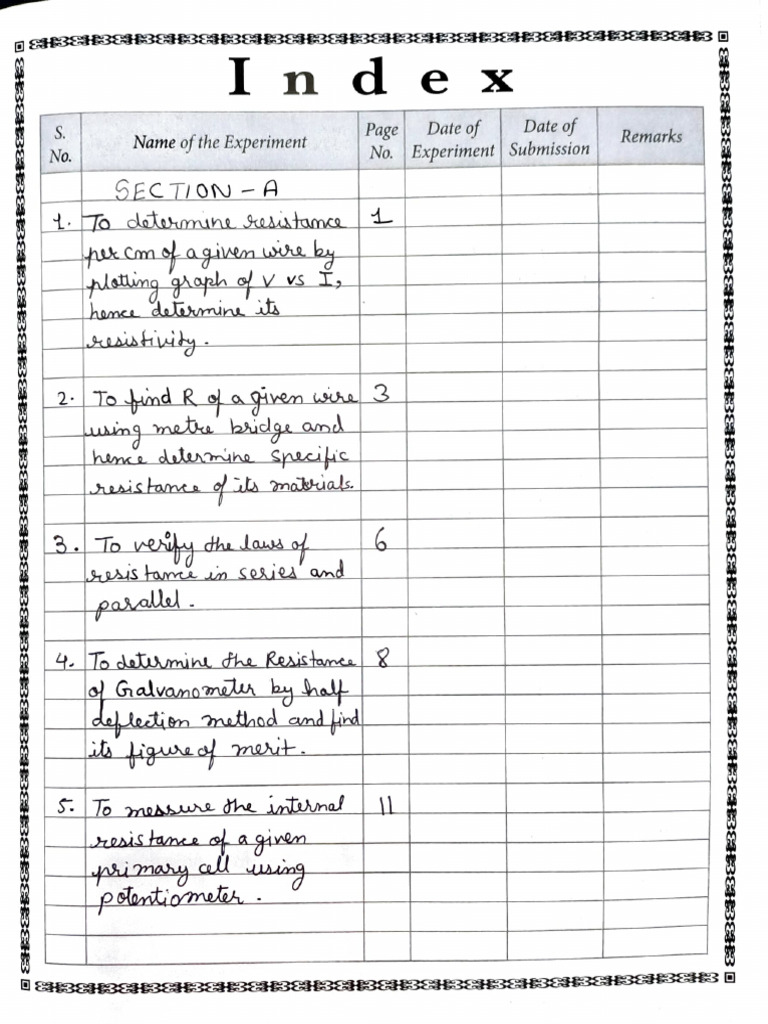 Index
S. No. Name of the Experiment Page No. Date of Experiment Date of Submission Remarks
SECTION - A
1. To determine resistance 1
per cm of a given wire by
plotting graph of V vs I,
hence determine its
resistivity.
2. To find R of a given wire 3
using metre bridge and
hence determine specific
resistance of its materials.
3. To verify the laws of 6
resistance in series and
parallel.
4. To determine the Resistance 8
of Galvanometer by half
deflection method and find
its figure of merit.
5. To messure the internal 11
resistance of a given
primary cell using
potentiometer.